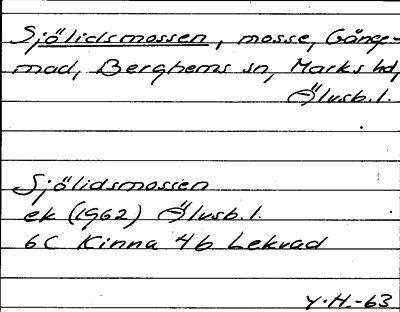 Sjölidsmossen, mosse, Gånge-
mad, Berghems sn, Marks hd,
Älvsb. l.
Sjölidsmossen
ek (1962) Älvsb. l.
6C Kinna 4b Lekvad
Y.H.-63